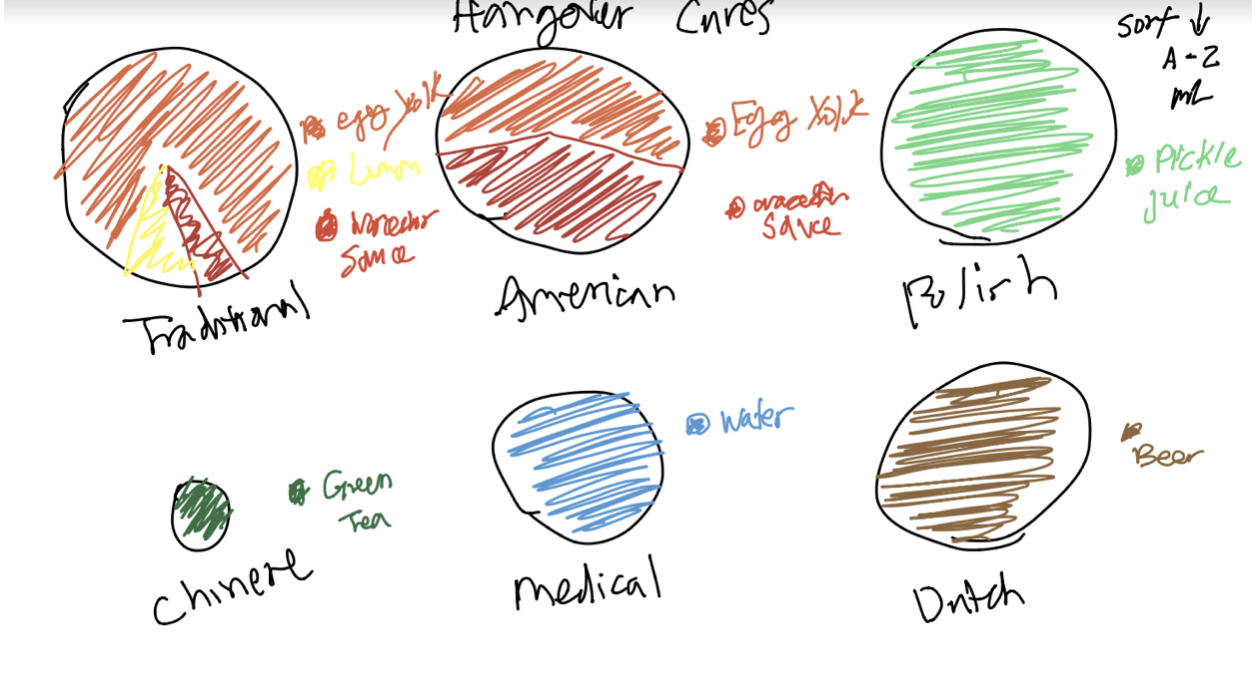 Hangover Cures
Sort ↓
A-Z
mL
egg Yolk
Lemon
sauce
Traditional
Egg Yolk
sauce
American
Pickle
juice
Polish
Green
Tea
Chinese
water
Medical
Beer
Dutch